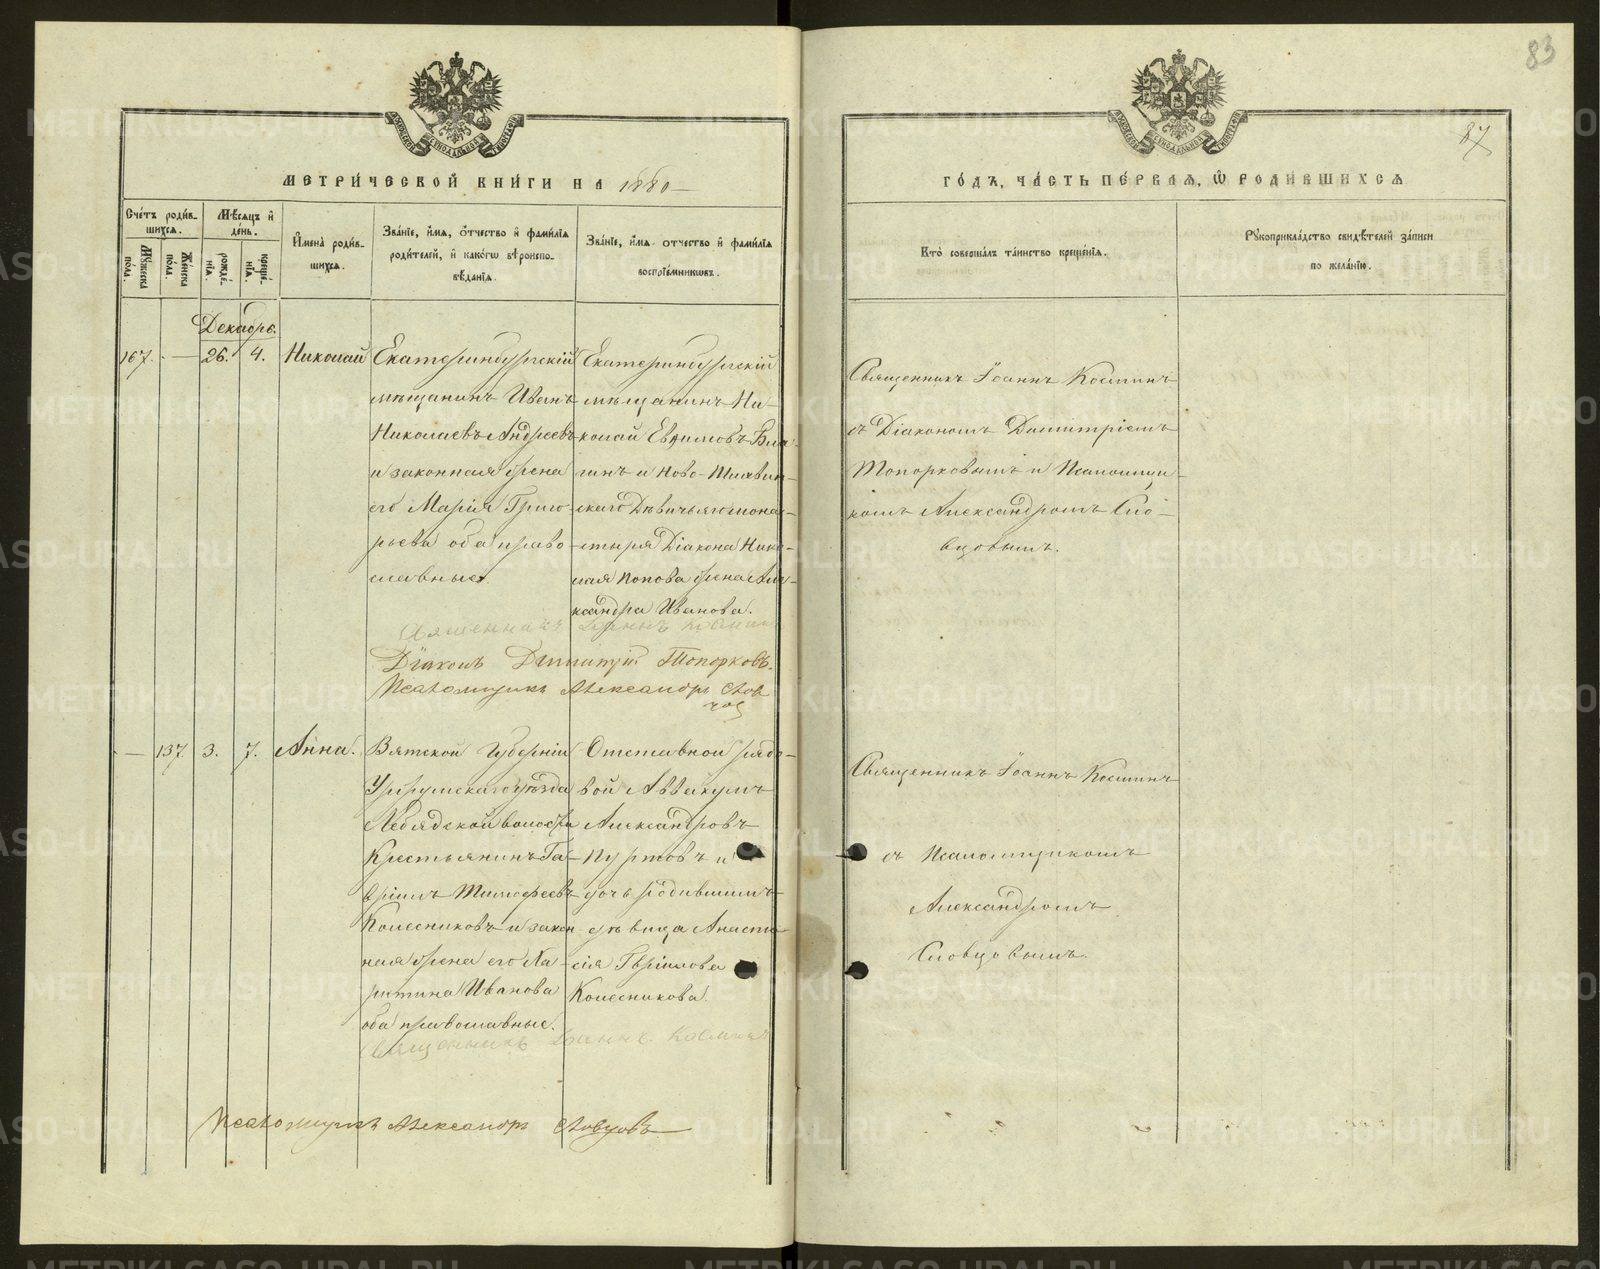 83
87
МЕТРИ́ЧЕСКОЙ КНИ́ГИ НА 1880
ГО́ДЪ, ЧА́СТЬ ПЕ́РВАЯ, Ѡ҆ РОДИ́ВШИХСЯ
Сче́тъ роди́вшихся.
Мѣ́сяцъ и҆ де́нь.
Мꙋ́жеска по́ла.
Же́нска по́ла.
рожде́нїя.
креще́нїя.
И҆мена̀ роди́вшихся.
Зва́нїе, и҆́мя, ѻ҆́тчество и҆ фами́лїя роди́телей, и҆ како́гѡ вѣроисповѣ́данїя.
Зва́нїе, и҆́мя ѻтчество и҆ фами́лїя воспрїе́мниковъ.
Кто̀ соверша́лъ та́инство креще́нїя.
Рꙋкоприкла́дство свидѣ́телей за́писи по жела́нїю.
Декабрь.
167. — 26. 4. Николай
Екатеринбургскій
мѣщанинъ Иванъ
Николаевъ Андреевъ
и законная жена
его Марія Григо-
рьева оба право-
славные.
Екатеринбургскій
мѣщанинъ Ни-
колай Евѳимовъ
и Ново-Тихвин-
скаго Дѣвичьяго мона-
стыря Діакона Нико-
лая Попова жена Але-
ксандра Иванова.
Священникъ Іоаннъ Костинъ
съ Діакономъ Димитріемъ
Топорковымъ и Псаломщи-
комъ Александромъ Сло-
вцовымъ.
Священникъ Іоаннъ
Діаконъ Димитрій Топорковъ.
Псаломщикъ Александръ Слов
цов
— 137 3. 7. Анна.
Вятской Губерніи
Уржумскаго уѣзда
Лебядской волости
Крестьянинъ Га-
вріилъ Тимофеевъ
Колесниковъ и закон
ная жена его Ха-
ритина Иванова
оба православные.
Отставной рядо-
вой Аввакумъ
Александровъ
Пуртовъ и
дочь родившимъ
дѣвица Анаста-
сія Гаврилова
Колесникова.
Священникъ Іоаннъ Костинъ
съ Псаломщикомъ
Александромъ
Словцовымъ.
Священникъ Іоаннъ
Псаломщикъ Александръ Словцовъ
METRIKI.GASO-URAL.RU